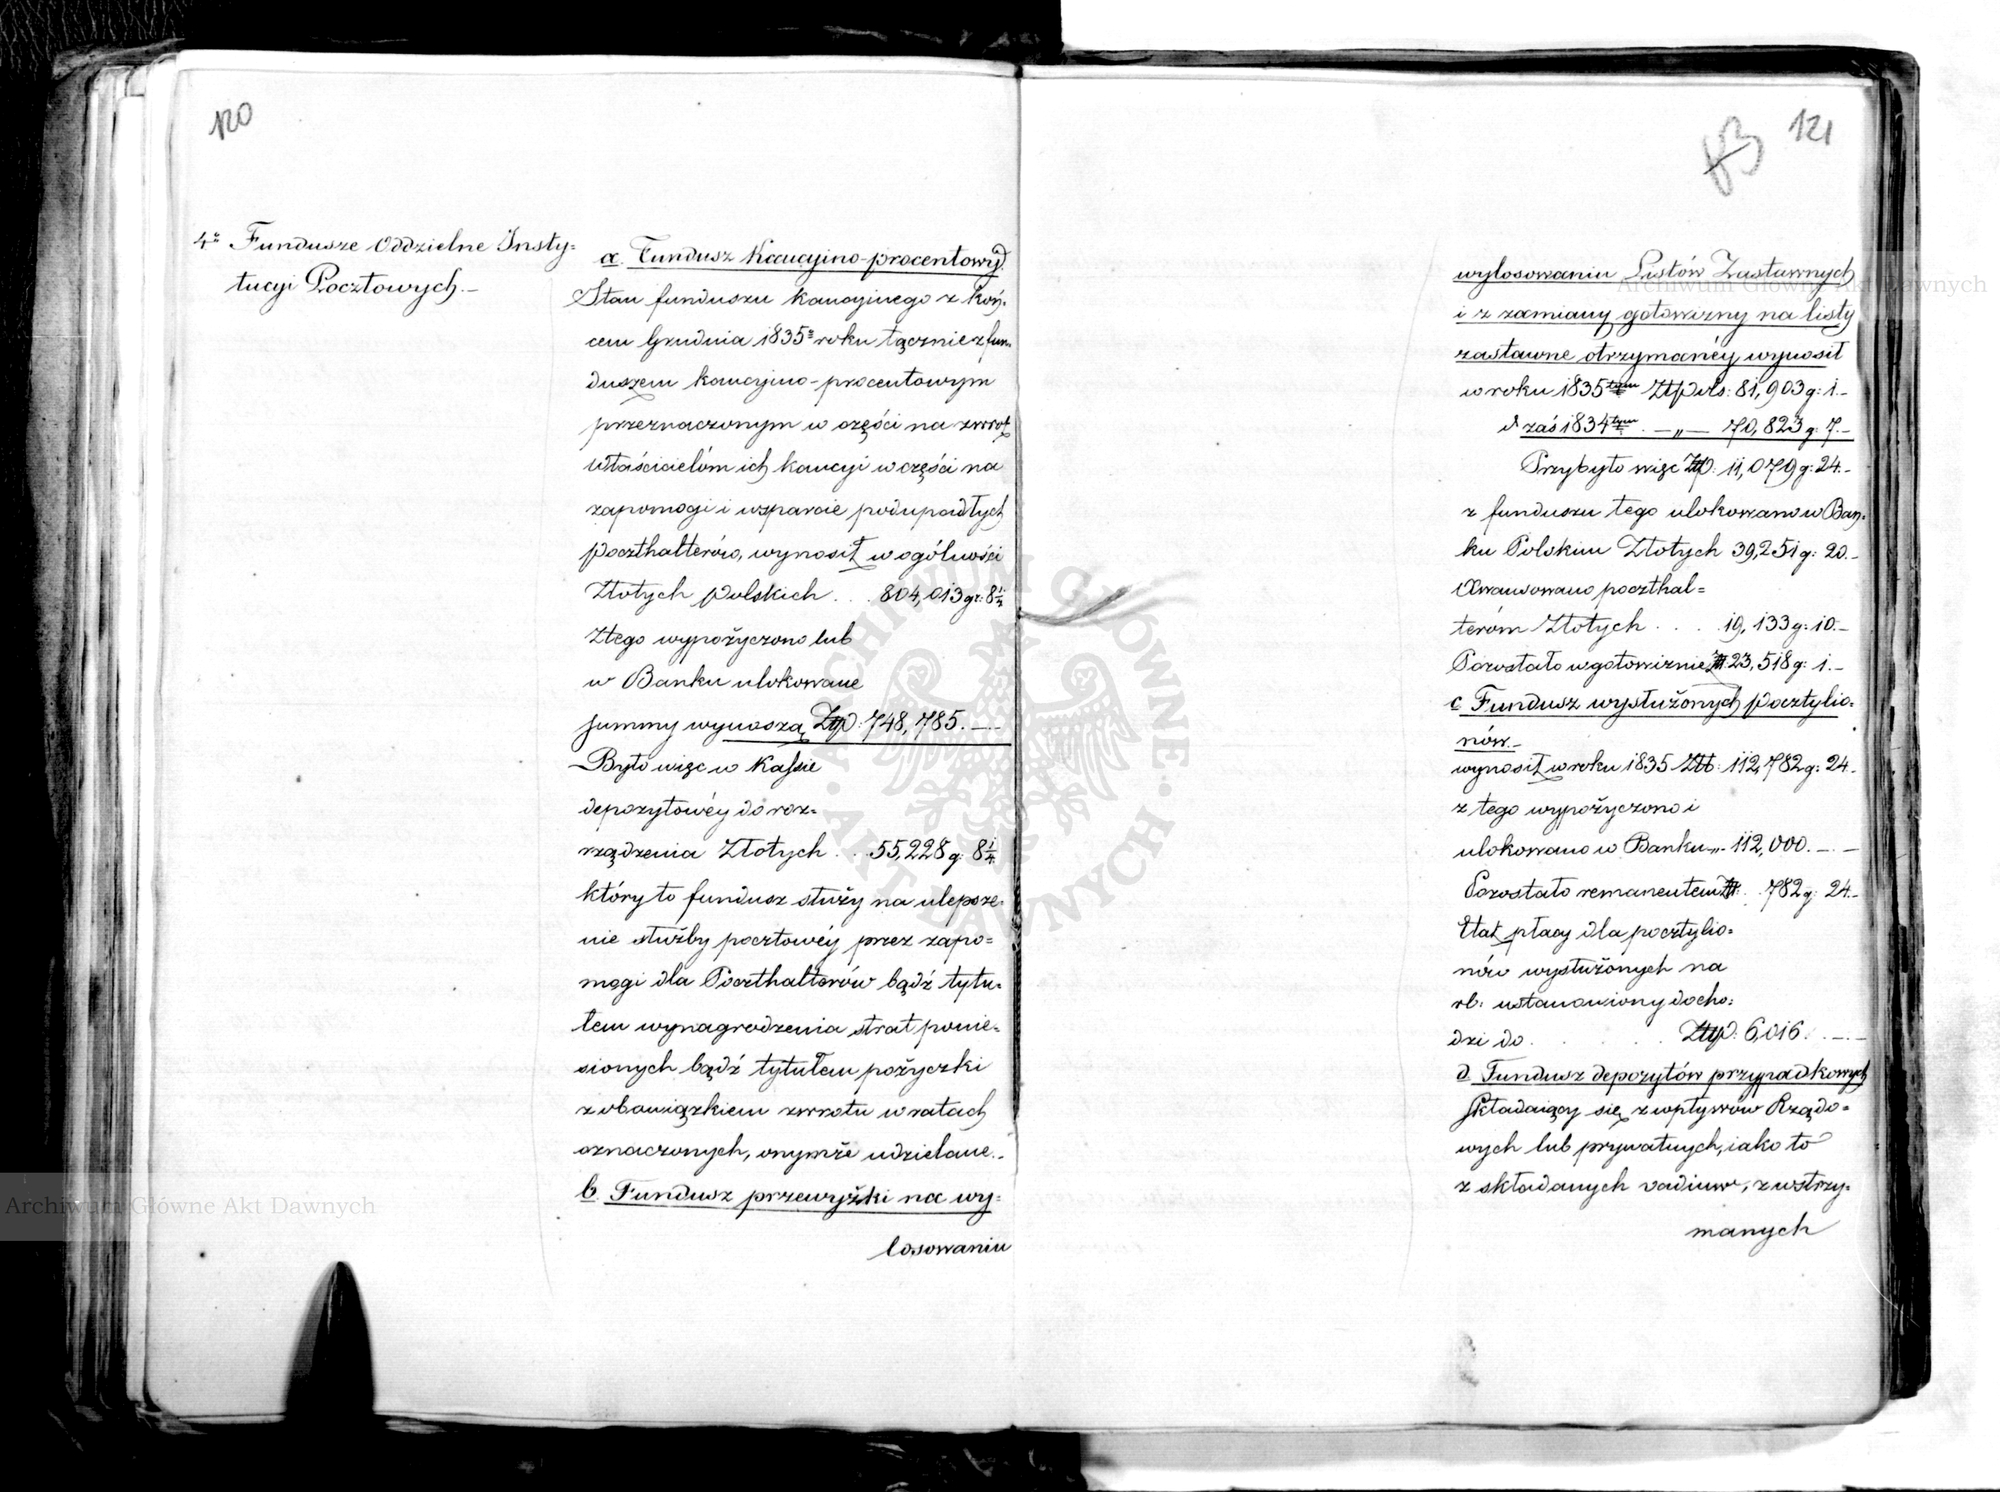 120
4º Fundusze Oddzielne Insty=
tucyi Pocztowych.—
a. Fundusz Kaucyino-procentowy.
Stan funduszu kaucyinego z koń=
cem Grudnia 1835º roku łącznie z fun=
duszem kaucyino-procentowym
przeznaczonym w części na zwrot
właścicielóm ich kaucyi w części na
zapomogi i wsparcie podupadłych
poczthalterów, wynosił w ogólności
Złotych polskich . . 804,013 gr: 8¼
Ztego wypożyczono lub
w Banku ulokowane
summy wynoszą Złp: 748,785. — —
Było więc w Kassie
depozytowéy do roz=
rządzenia Złotych . . 55,228 g: 8¼
który to fundusz służy na ulepsze=
nie służby pocztowéy przez zapo=
mogi dla Poczthalterów bądź tytu=
łem wynagrodzenia strat ponie=
sionych bądź tytułem pożyczki
z obowiązkiem zwrotu w ratach
oznaczonych, onymże udzielane.—
b. Fundusz przewyżki na wy=
losowaniu
83 121
wylosowaniu Listów Zastawnych
i z zamiany gotowizny na listy
zastawne otrzymanéy wynosił
w roku 1835tym Złpols: 81,903 g: 1.—
d zaś 1834tym . — „ — 70,823 g: 7.—
Przybyło więc Złp: 11,079 g: 24.—
z funduszu tego ulokowano w Ban=
ku Polskim Złotych 39,251 g: 20.—
Awansowano poczthal=
teróm Złotych . . . . 19,133 g: 10.—
Pozostało w gotowiznie Zł: 23,518 g: 1.—
c Fundusz wysłużonych pocztylio=
nów.—
wynosił w roku 1835 Złł: 112,782 g: 24.—
z tego wypożyczono i
ulokowano w Banku „ 112,000. — —
Pozostało remanentem Zł: . 782 g: 24.—
Etat płacy dla pocztylio=
nów wysłużonych na
rb: ustanowiony docho=
dzi do . . . . Złp: 6,016. . — —
d Fundusz depozytów przypadkowych
składaiący się z wpływów Rządo=
wych lub prywatnych, iako to
z składanych vadiuw, z wstrzy=
manych
Archiwum Główne Akt Dawnych
Archiwum Główne Akt Dawnych
ARCHIWUM GŁÓWNE · AKT DAWNYCH ·